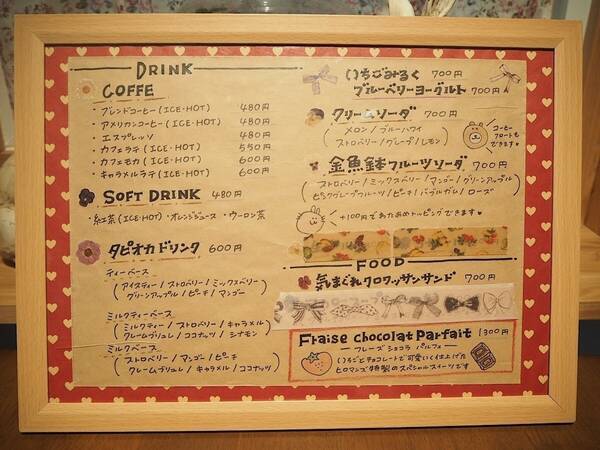 DRINK
COFFE
・ブレンドコーヒー(ICE・HOT) 480円
・アメリカンコーヒー(ICE・HOT) 480円
・エスプレッソ 480円
・カフェラテ(ICE・HOT) 550円
・カフェモカ(ICE・HOT) 600円
・キャラメルラテ(ICE・HOT) 600円
SOFT DRINK 480円
・紅茶(ICE・HOT)・オレンジジュース・ウーロン茶
タピオカドリンク 600円
ティーベース
(アイスティー/ストロベリー/ミックスベリー
グリーンアップル/ピーチ/マンゴー)
ミルクティーベース
(ミルクティー/ストロベリー/キャラメル
クレームブリュレ/ココナッツ/シナモン)
ミルクベース
(ストロベリー/マンゴー/ピーチ
クレームブリュレ/キャラメル/ココナッツ)
いちごみるく 700円
ブルーベリーヨーグルト 700円
クリームソーダ 700円
(メロン/ブルーハワイ
ストロベリー/グレープ/レモン)
コーヒー
フロートも
できます♥
金魚鉢フルーツソーダ 700円
(ストロベリー/ミックスベリー/マンゴー/グリーンアップル
ピンクグレープフルーツ/ピーチ/バブルガム/ローズ)
+100円であたためトッピングできます♥
FOOD
気まぐれクロワッサンサンド 700円
Fraise chocolat Parfait 1300円
フレーズ ショコラ パルフェ
いちごとチョコレートで可愛いく仕上げた
ヒロマンズ特製のスペシャルスイーツです